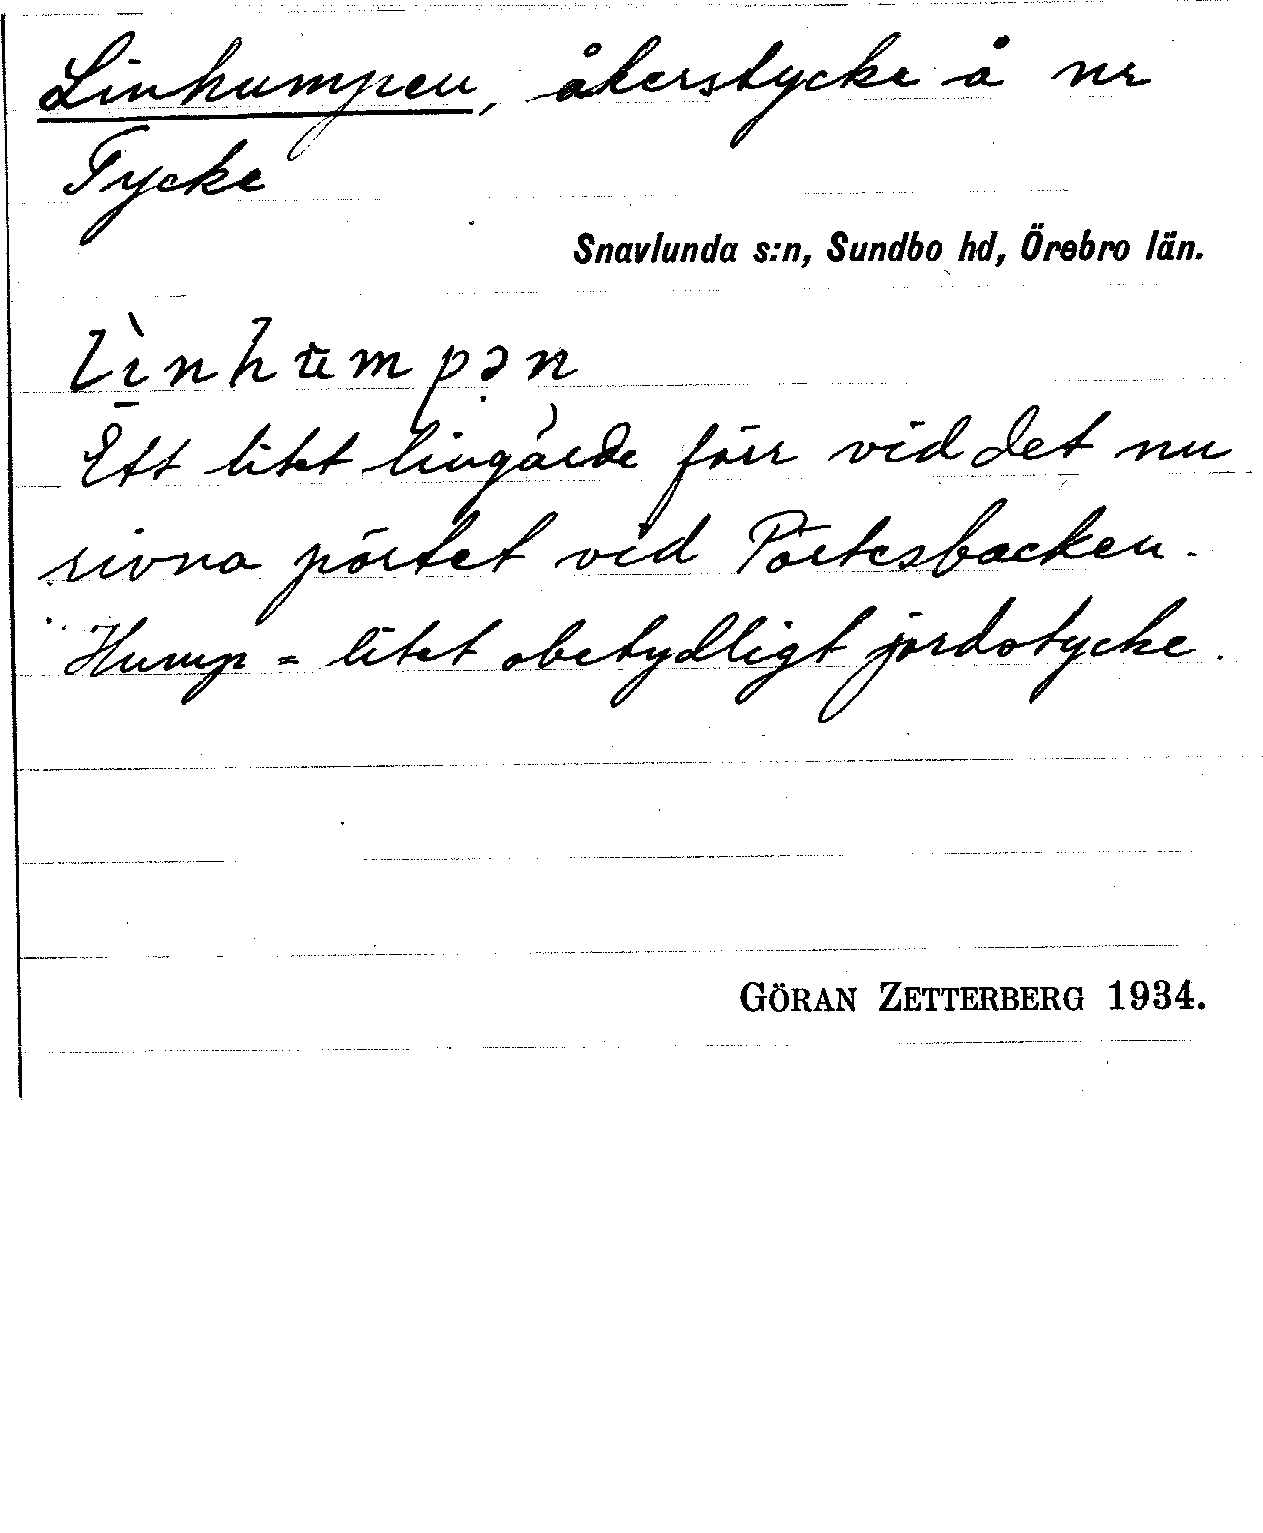 Linhumpen, åkerstycke å nr
Tycke
Snavlunda s:n, Sundbo hd, Örebro län.
lìnhumpən
Ett litet lingärde förr vid det nu
rivna pörtet vid Pörtesbacken.
Hump = litet obetydligt jordstycke.
GÖRAN ZETTERBERG 1934.